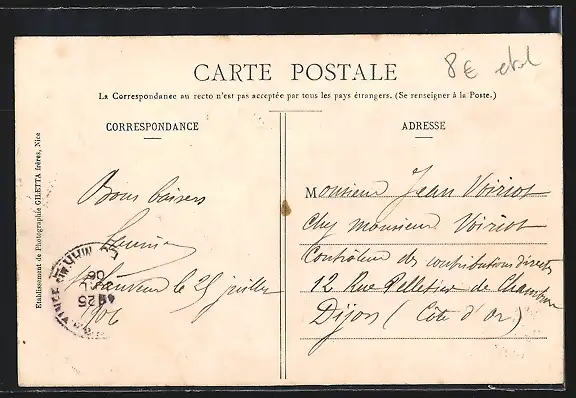 8€
CARTE POSTALE
La Correspondance au recto n'est pas acceptée par tous les pays étrangers. (Se renseigner à la Poste.)
CORRESPONDANCE
Bons baisers
Sauveur le 25 juillet
1906
ADRESSE
Monsieur Jean Voiriot
Chez monsieur Voiriot
Contrôleur des contributions directes
12 Rue Pelletier de Chambure
Dijon (Côte d'Or)
Etablissement de Photographie GILETTA frères, Nice
25
06